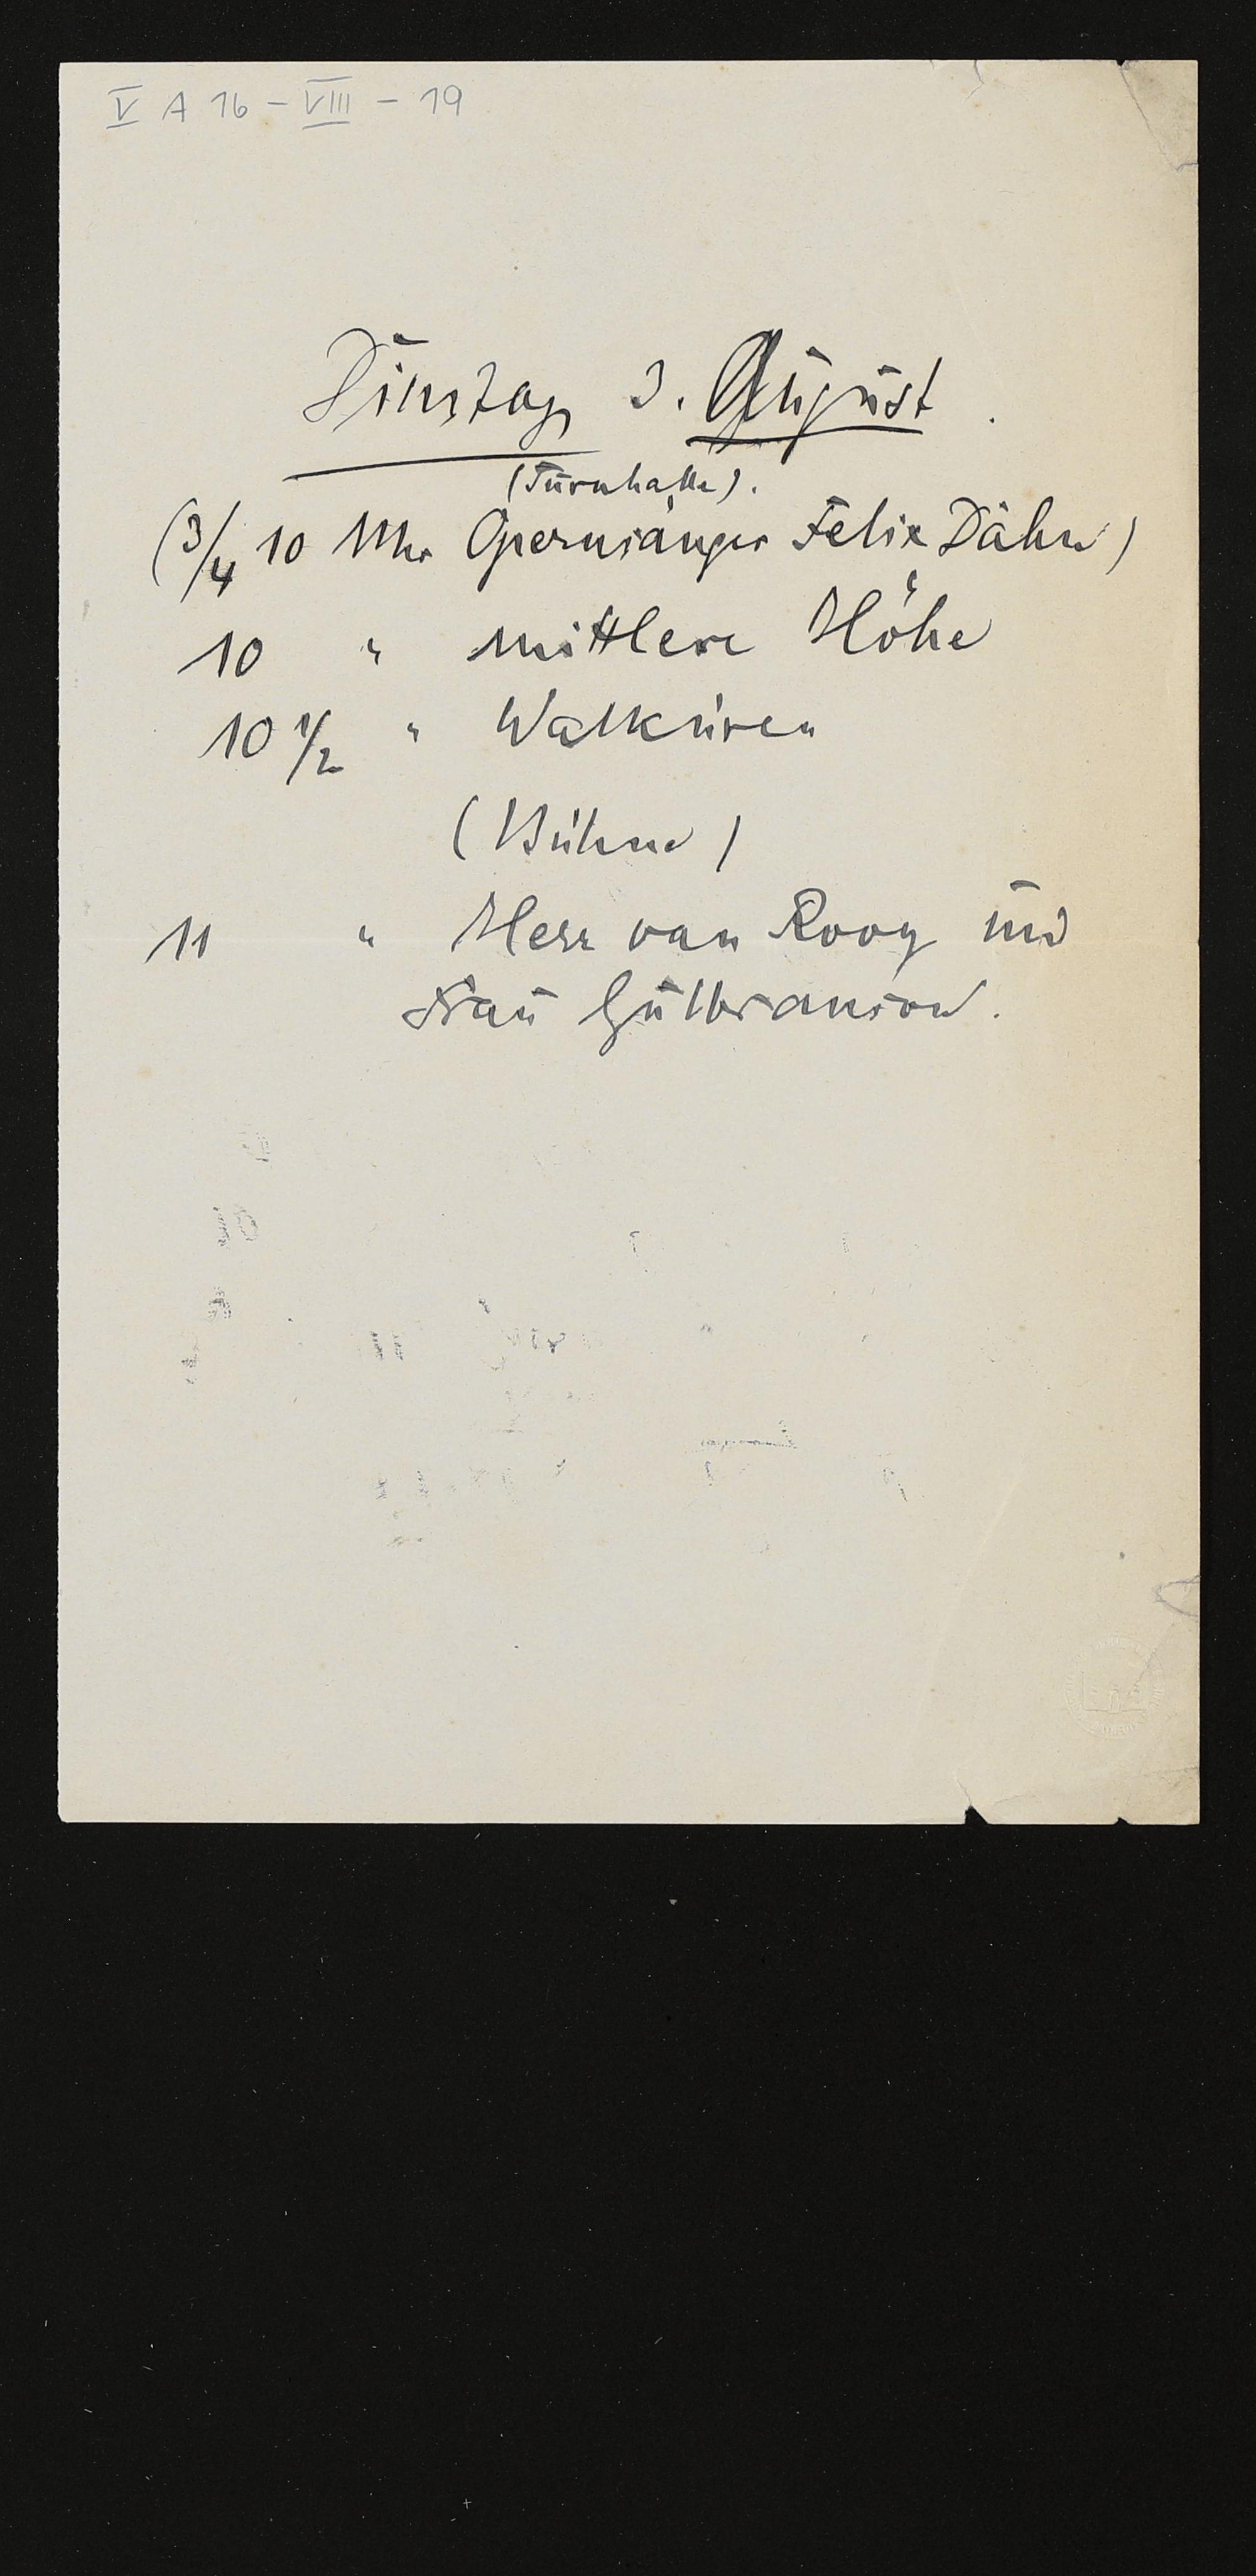 V A 16 - VIII - 19
Dinstag 3. August.
(Turnhalle).
(3/4 10 Uhr Opernsänger Felix Dähn)
10 " mittlere Höhe
10 1/2 " Walküren
(Bühne)
11 " Herr van Rooy und
Frau Gulbranson.